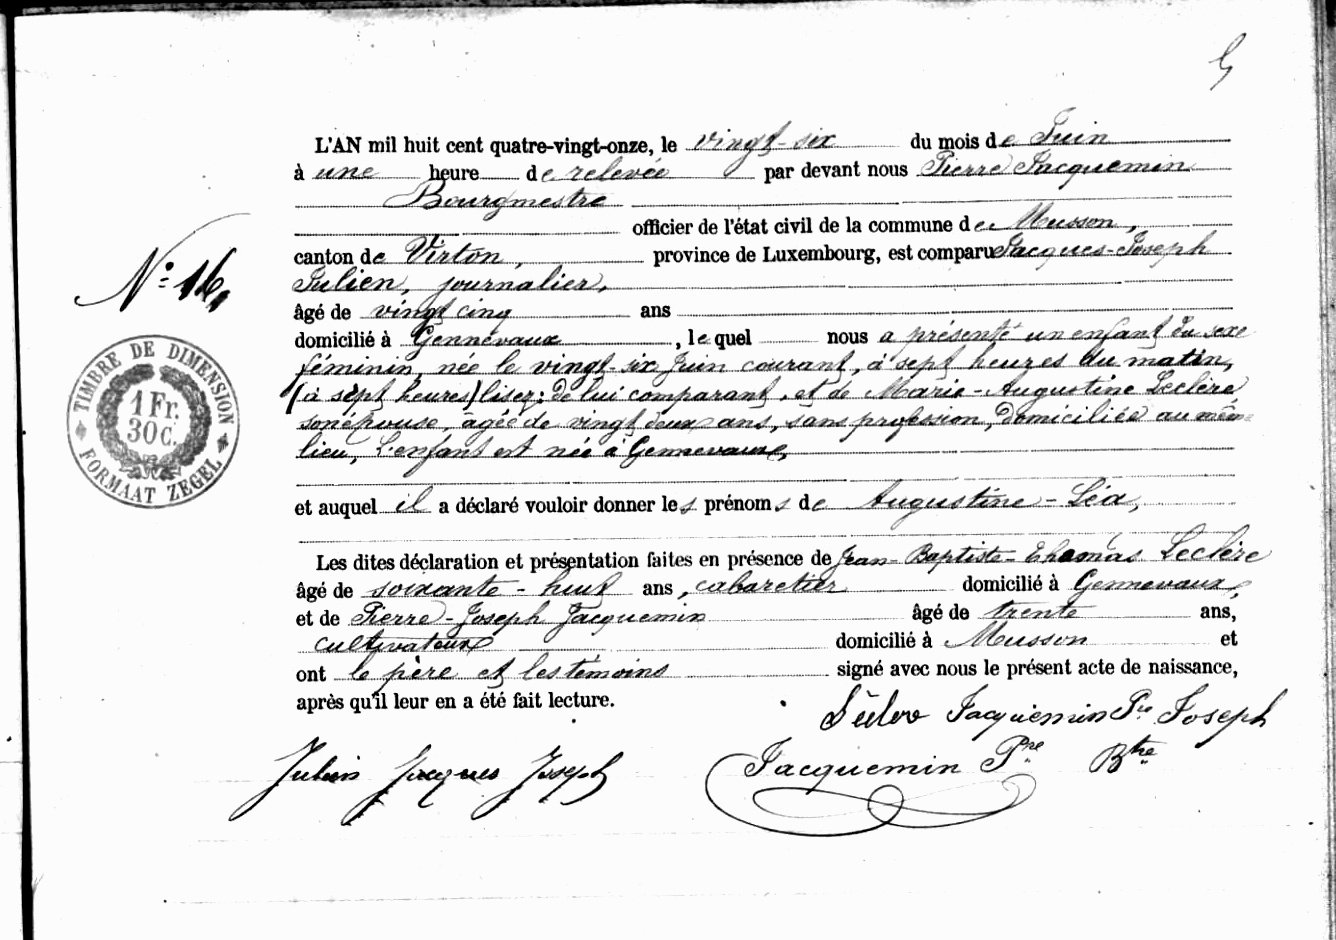 5
L'AN mil huit cent quatre-vingt-onze, le vingt-six du mois de Juin
à une heure de relevée par devant nous Pierre Jacquemin
Bourgmestre
officier de l'état civil de la commune de Musson,
canton de Virton, province de Luxembourg, est comparu Jacques-Joseph
Julien, journalier,
N° 16,
âgé de vingt cinq ans
domicilié à Gennevaux, lequel nous a présenté un enfant du sexe
féminin, née le vingt-six Juin courant, à sept heures du matin,
(à sept heures) lisez: de lui comparant, et de Marie-Augustine Leclère
son épouse, agée de vingt deux ans, sans profession, domiciliée au même
lieu, L'enfant est née à Gennevaux,
TIMBRE DE DIMENSION
1 Fr.
30 C.
FORMAAT ZEGEL
et auquel il a déclaré vouloir donner les prénoms de Augustine-Léa,
Les dites déclaration et présentation faites en présence de Jean-Baptiste-Thomas Leclère
âgé de soixante-huit ans, cabaretier domicilié à Gennevaux,
et de Pierre-Joseph Jacquemin âgé de trente ans,
cultivateur domicilié à Musson et
ont le père et les témoins signé avec nous le présent acte de naissance,
après qu'il leur en a été fait lecture.
Jacquemin Pre Joseph
Julien Jacques Joseph
Jacquemin Pre Btre